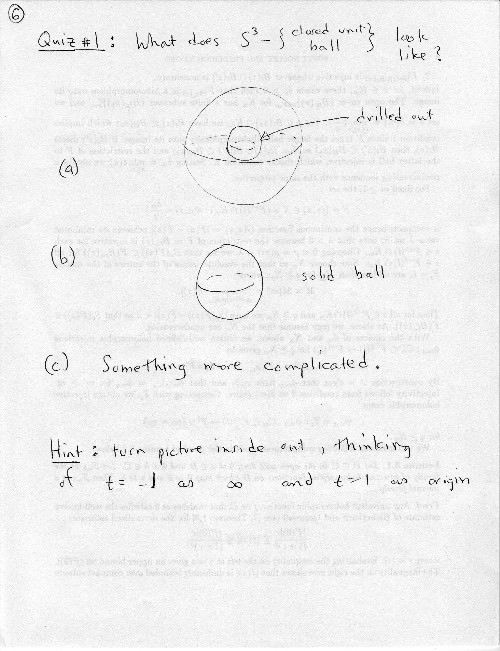 6
Quiz #1: What does S³ - { closed unit ball } look like?
drilled out
(a)
(b)
solid ball
(c) Something more complicated.
Hint: turn picture inside out, thinking
of t = -1 as ∞ and t = 1 as origin